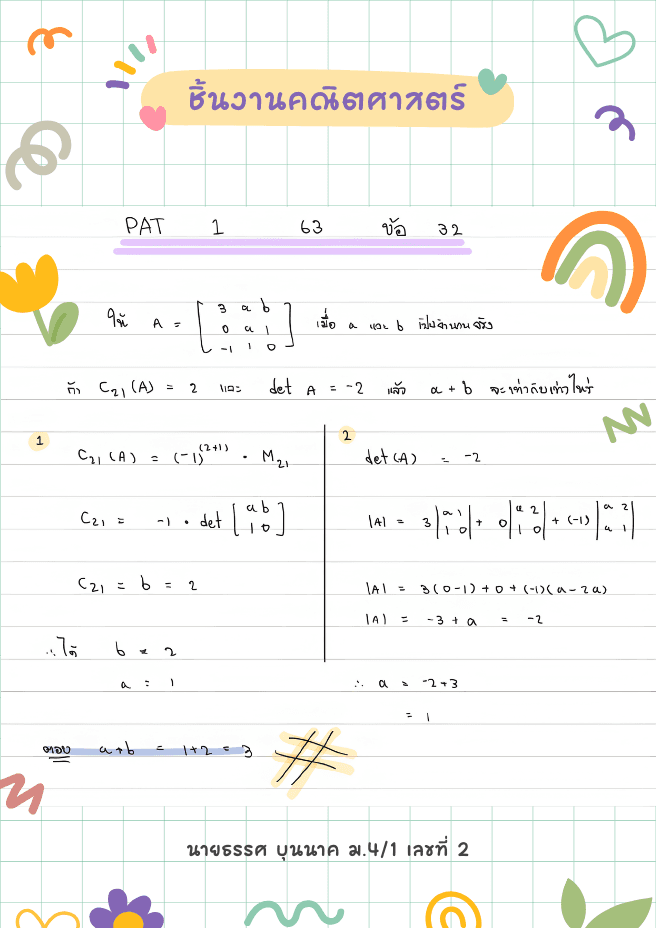 ชิ้นงานคณิตศาสตร์
PAT 1 63 ข้อ 32
ให้ A = [ 3 a b
0 a 1
-1 1 0 ] เมื่อ a และ b เป็นจำนวนจริง
ถ้า C₂₁(A) = 2 และ det A = -2 แล้ว a + b จะเท่ากับเท่าไหร่
1
C₂₁(A) = (-1)⁽²⁺¹⁾ · M₂₁
C₂₁ = -1 · det [ a b
1 0 ]
C₂₁ = b = 2
∴ ได้ b = 2
a = 1
2
det(A) = -2
|A| = 3 | a 1 | + 0 | a 2 | + (-1) | a 2 |
| 1 0 | | 1 0 | | a 1 |
|A| = 3(0-1)+0+(-1)(a-2a)
|A| = -3 + a = -2
∴ a = -2+3
= 1
ตอบ a+b = 1+2 = 3
นายธรรศ บุนนาค ม.4/1 เลขที่ 2